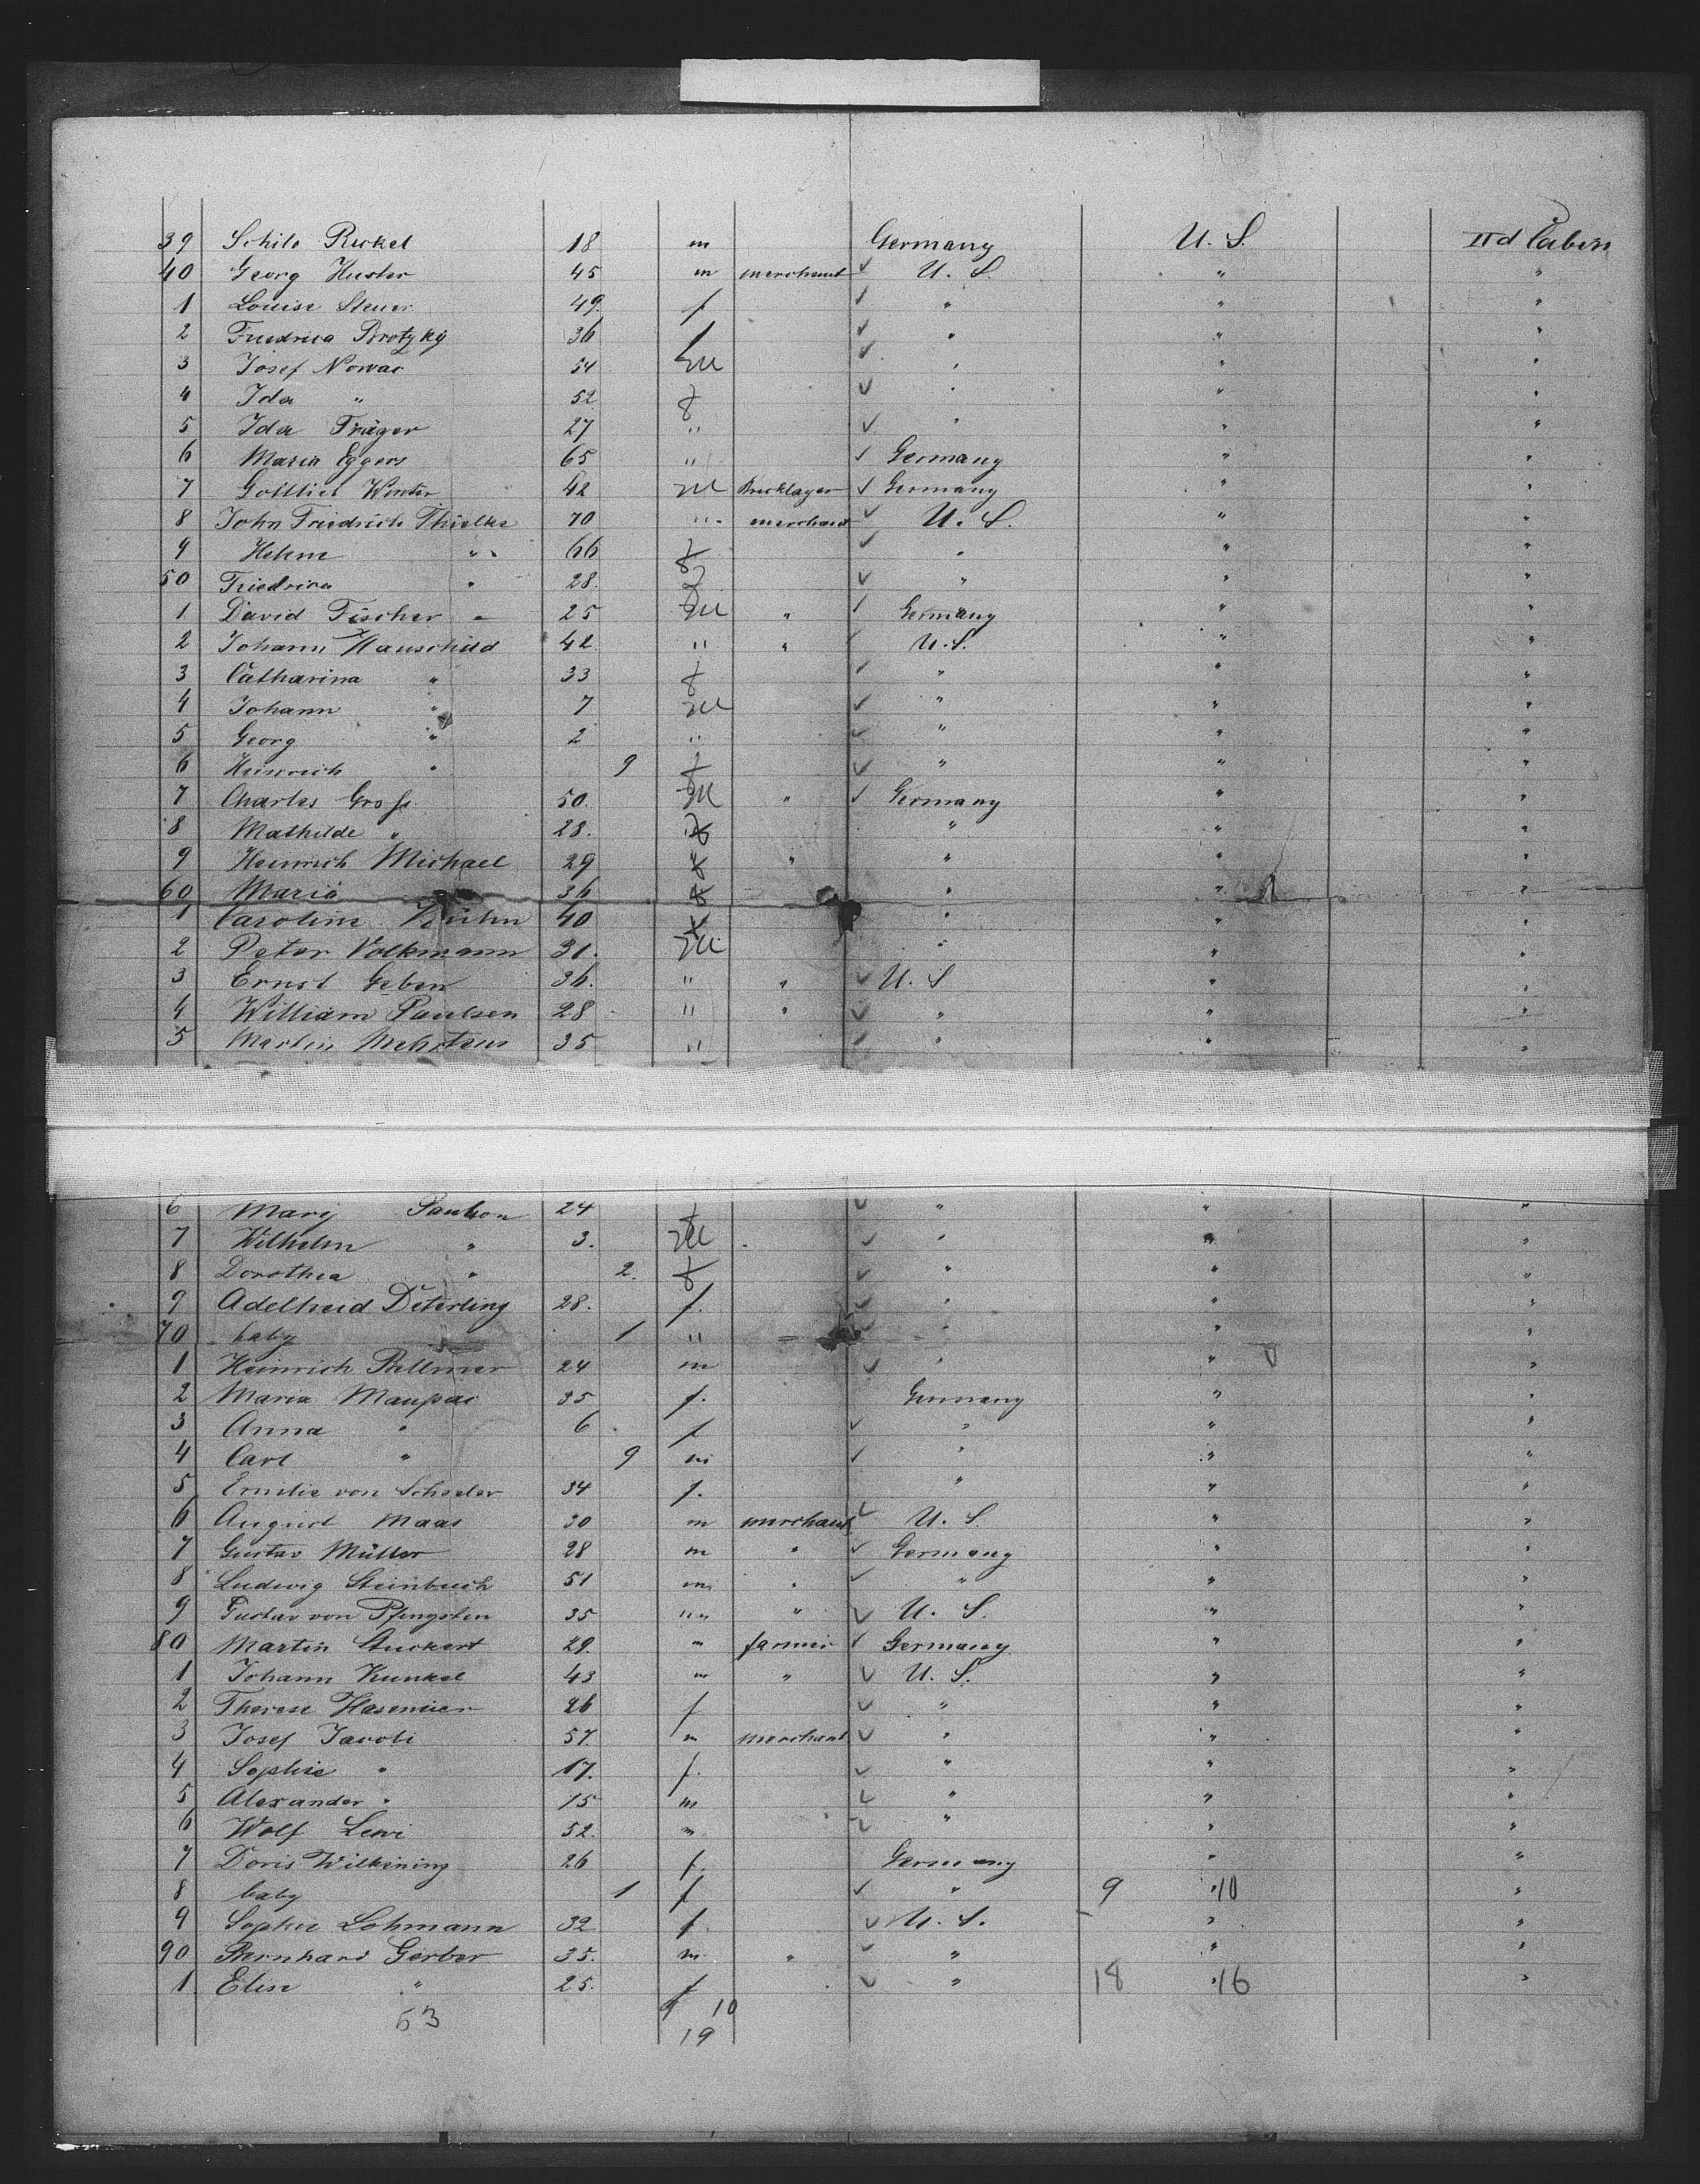 39 Schilo Rickel 18 m Germany U. S. IId Cabin
40 Georg Huster 45 m merchant ✓ U. S. " "
1 Louise 49. f ✓ " " "
2 Friedrica 36 f ✓ " " "
3 Josef Nowac 54 M ✓ " " "
4 Ida " 52 f ✓ " " "
5 Ida Präger 27 " ✓ " " "
6 Maria Eggers 65 " ✓ Germany " "
7 Gottlieb Winter 42 M Bricklayer ✓ Germany " "
8 John Friedrich Thielke 70 " merchant ✓ U. S. " "
9 Helene " 66 f ✓ " " "
50 Friedrica " 28. f ✓ " " "
1 David Fischer 25 M " ✓ Germany " "
2 Johann Hauschild 42. " " ✓ U. S. " "
3 Catharina " 33 f ✓ " " "
4 Johann " 7 M ✓ " " "
5 Georg " 2 " ✓ " " "
6 Heinrich " 9 f ✓ " " "
7 Charles Gross 50. M " ✓ Germany " "
8 Mathilde " 28. f " " "
9 Heinrich Michael 29 f " " " "
60 Maria 36 f " " "
1 Caroline Kühn 40 f " " "
2 Peter Volkmann 31. M " " "
3 Ernst Geben 36. " " ✓ U. S " "
4 William Paulsen 28 " " ✓ " " "
5 Martin Mehrtens 35 " ✓ " " "
6 Mary Paulson 24 f ✓ " " "
7 Wilhelm " 3. M ✓ " " "
8 Dorothea " 2. f ✓ " " "
9 Adelheid Deterling 28. f. ✓ " " "
70 baby 1 " ✓ " " "
1 Heinrich Bellmer 24 m ✓ " " "
2 Maria Maupai 35 f. Germany " "
3 Anna " 6 f ✓ " " "
4 Carl " 9 m ✓ " " "
5 Emilie von Scheeler 34 f. " " "
6 August Maas 30 m merchant ✓ U. S. " "
7 Gustav Müller 28 m " ✓ Germany " "
8 Ludwig Steinbuch 51 m " ✓ " " "
9 Gustav von Pfingsten 35 " " ✓ U. S. " "
80 Martin Stuckert 29. " farmer ✓ Germany " "
1 Johann Kunkel 43 m " ✓ U. S. " "
2 Therese Hasemeier 26 f ✓ " " "
3 Josef Jacobi 57. m merchant ✓ " " "
4 Sophie " 17. f. ✓ " " "
5 Alexander " 15 m ✓ " " "
6 Wolf Lewi 52. m ✓ " " "
7 Doris Wilkening 26 f. Germany " "
8 baby 1 f ✓ " 9 10 "
9 Sophie Lohmann 32 f. ✓ U. S. " "
90 Bernhard Gerber 35. m. " ✓ " " "
1 Elise " 25. f ✓ " 18 16 "
53 9 10
19